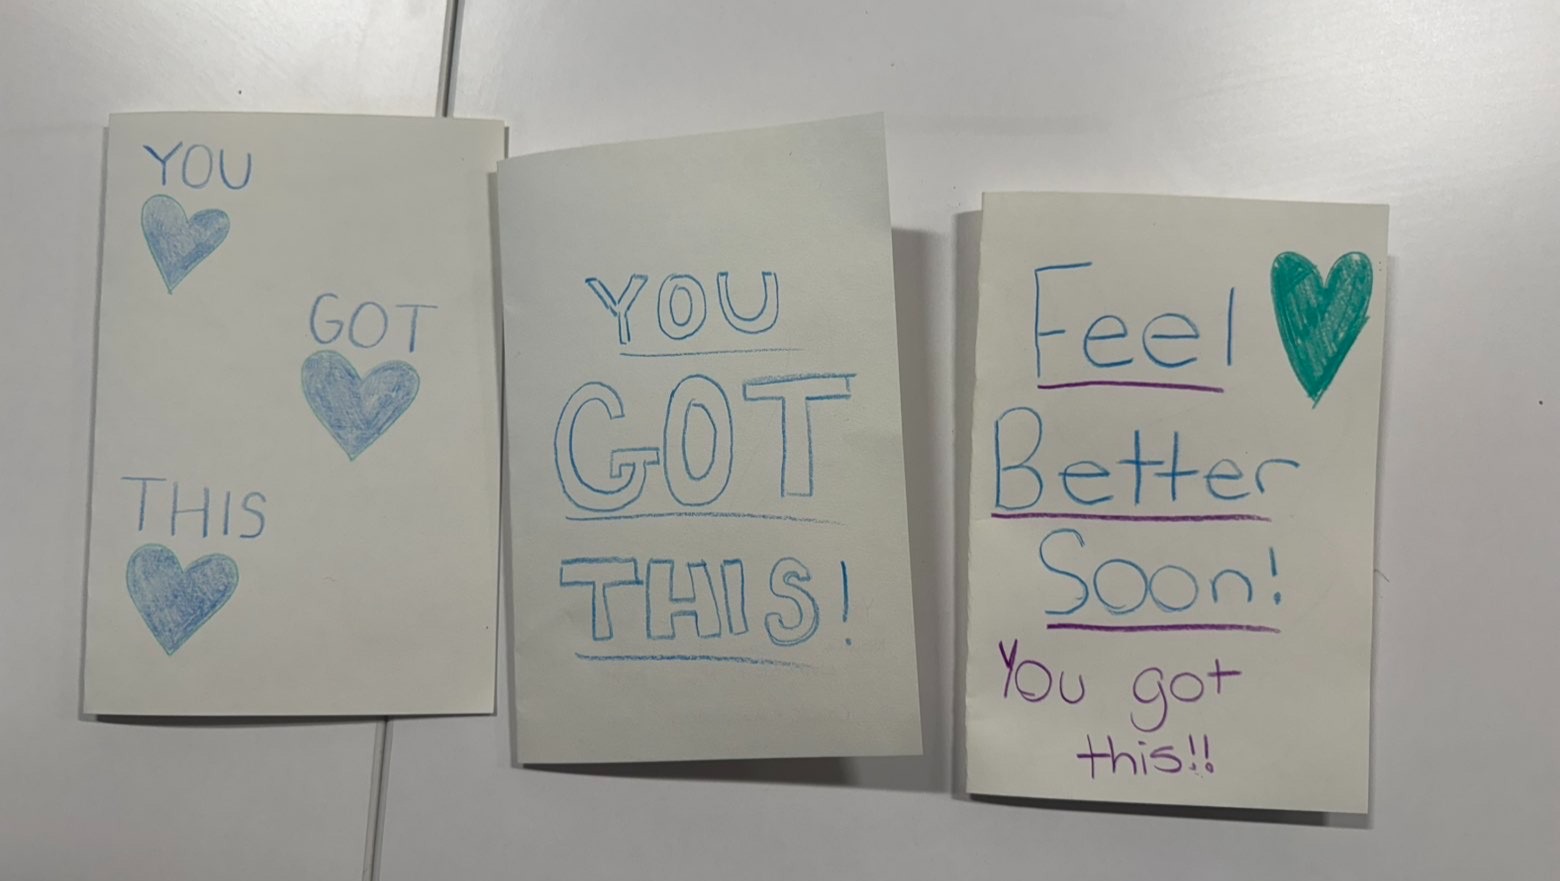 YOU
GOT
THIS
YOU
GOT
THIS!
Feel
Better
Soon!
You got
this!!